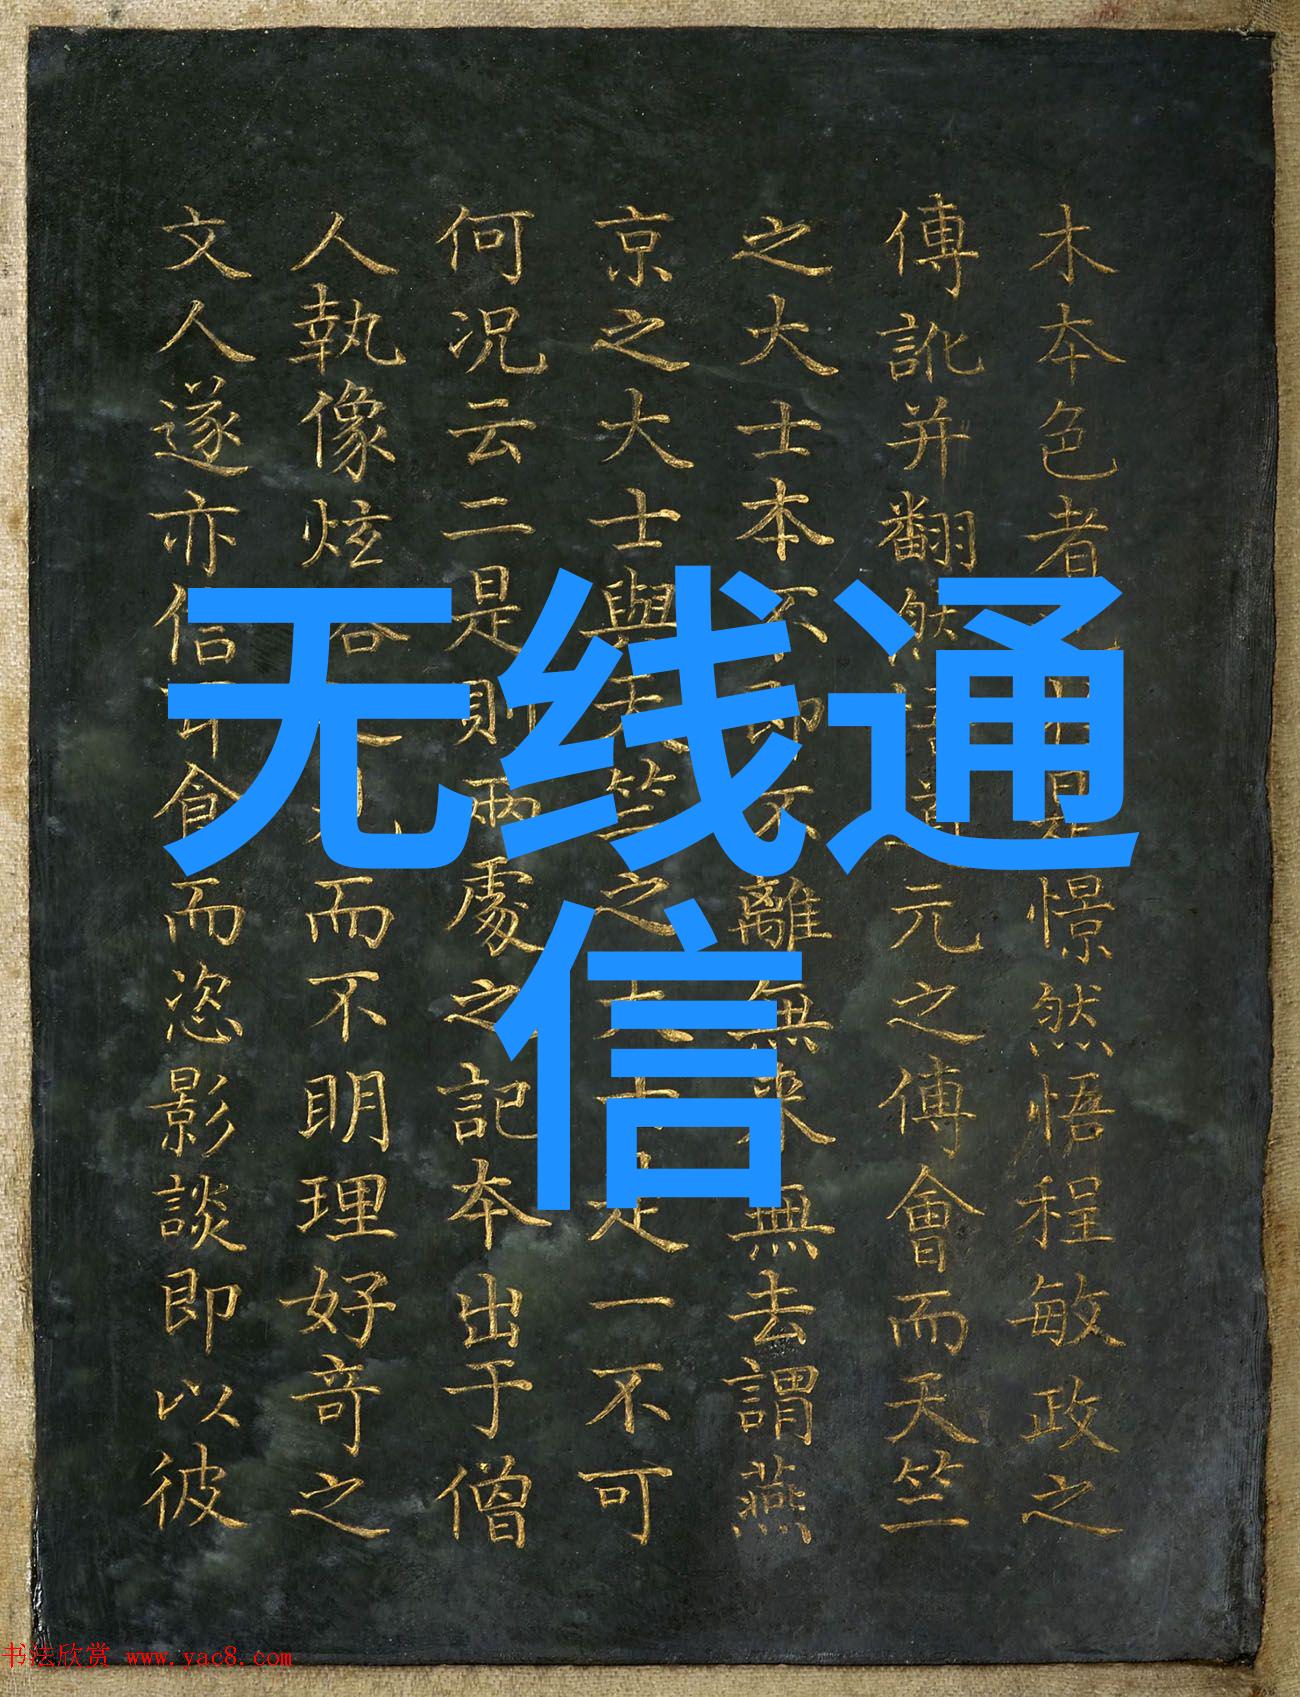 木本色者憬然悟程敏政之
傅訛并翻然元之傅會而天竺
之大士本不即不離無來無去謂燕
京之大士與天竺之大士是一不可
何况云二是則兩處之記本出于僧
人執像炫而不明理好奇之
文人遂亦信耳食而恣影談即以彼
无线通
信
书法欣赏 www.yac8.com